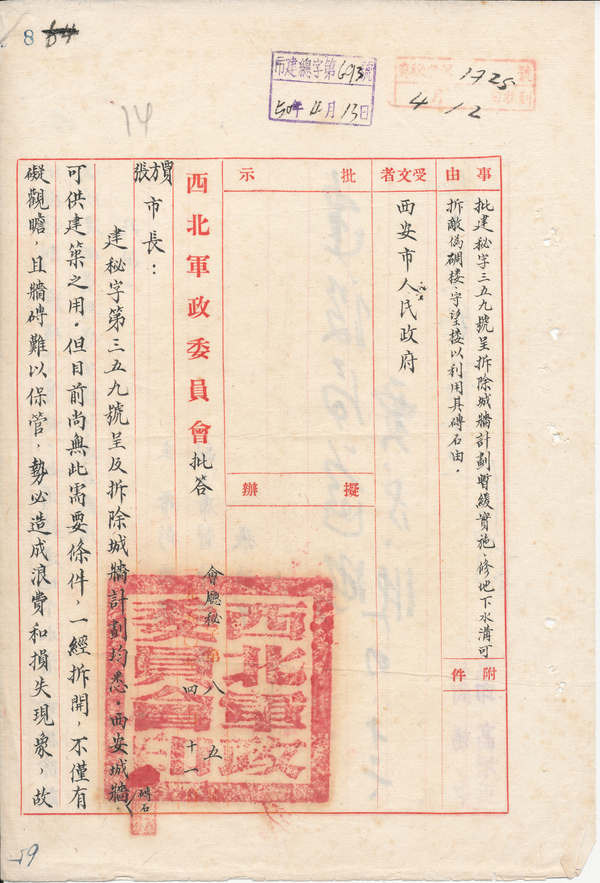 8
84
14
市建總字第693號
50年4月13日
1725
號
4月12日收到
事由
批建秘字三五九號呈拆除城牆計劃暫緩實施、修地下水溝可
拆敵偽碉樓、守望樓以利用其磚石由。
附件
受文者
西安市人民政府
批示
擬辦
西北軍政委員會批答
會廳秘
八五
四十一
西北軍政委員會印
張方賈市長：
建秘字第三五九號呈及拆除城牆計劃均悉。西安城牆磚石
可供建築之用。但目前尚無此需要條件，一經拆開，不僅有
礙觀瞻，且牆磚難以保管，勢必造成浪費和損失現象，故
59